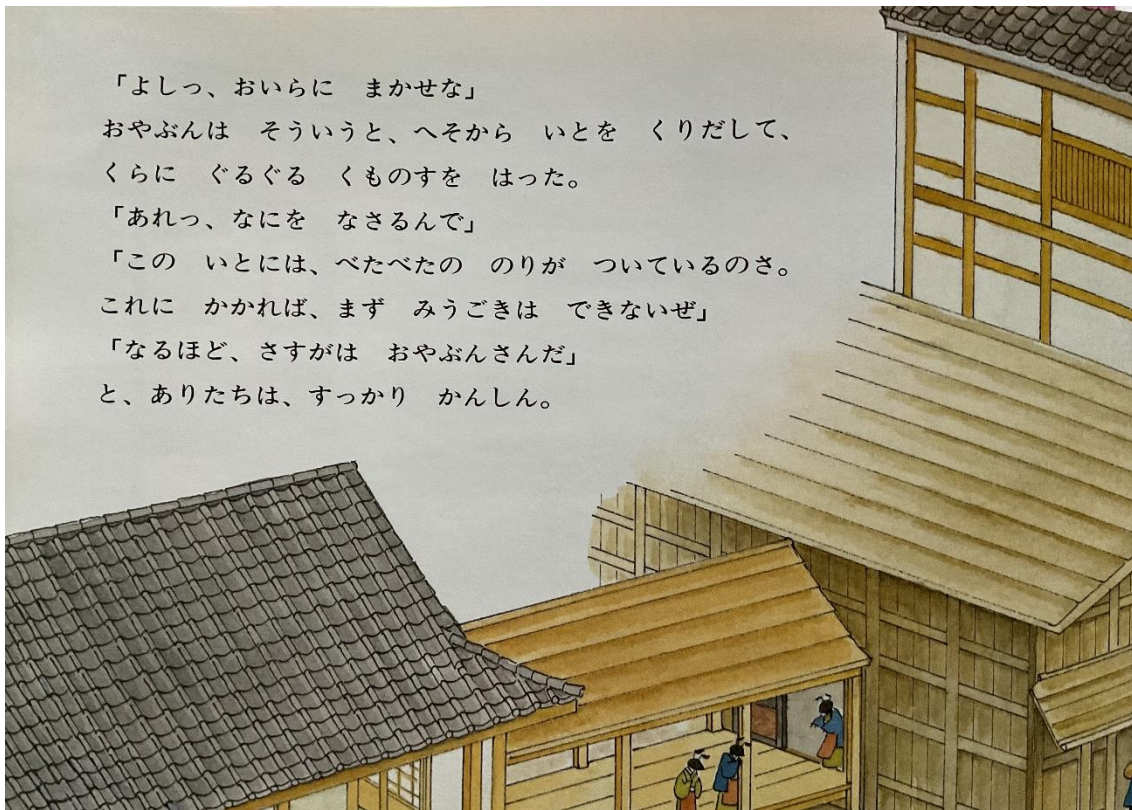 「よしっ、おいらに　まかせな」
おやぶんは　そういうと、へそから　いとを　くりだして、
くらに　ぐるぐる　くものすを　はった。
「あれっ、なにを　なさるんで」
「この　いとには、べたべたの　のりが　ついているのさ。
これに　かかれば、まず　みうごきは　できないぜ」
「なるほど、さすがは　おやぶんさんだ」
と、ありたちは、すっかり　かんしん。